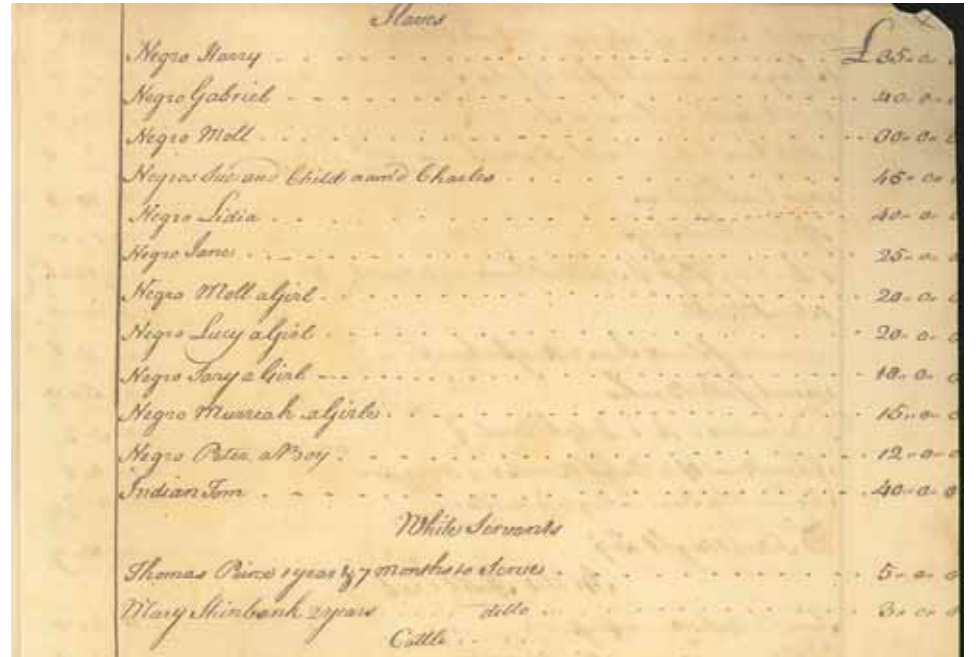 Slaves
Negro Harry £35-0-0
Negro Gabriel 40-0-0
Negro Moll 30-0-0
Negros Sue and Child nam'd Charles 45-0-0
Negro Lidia 40-0-0
Negro Jane 25-0-0
Negro Moll a Girl 20-0-0
Negro Lucy a Girl 20-0-0
Negro a Girl 18-0-0
Negro Murreah a Girle 15-0-0
Negro Peter a Boy 12-0-0
Indian Tom 40-0-0
White Servants
Thomas 1 year & 7 months to Serve 5-0-0
Mary Shinbank 2 years ditto 3-0-0
Cattle